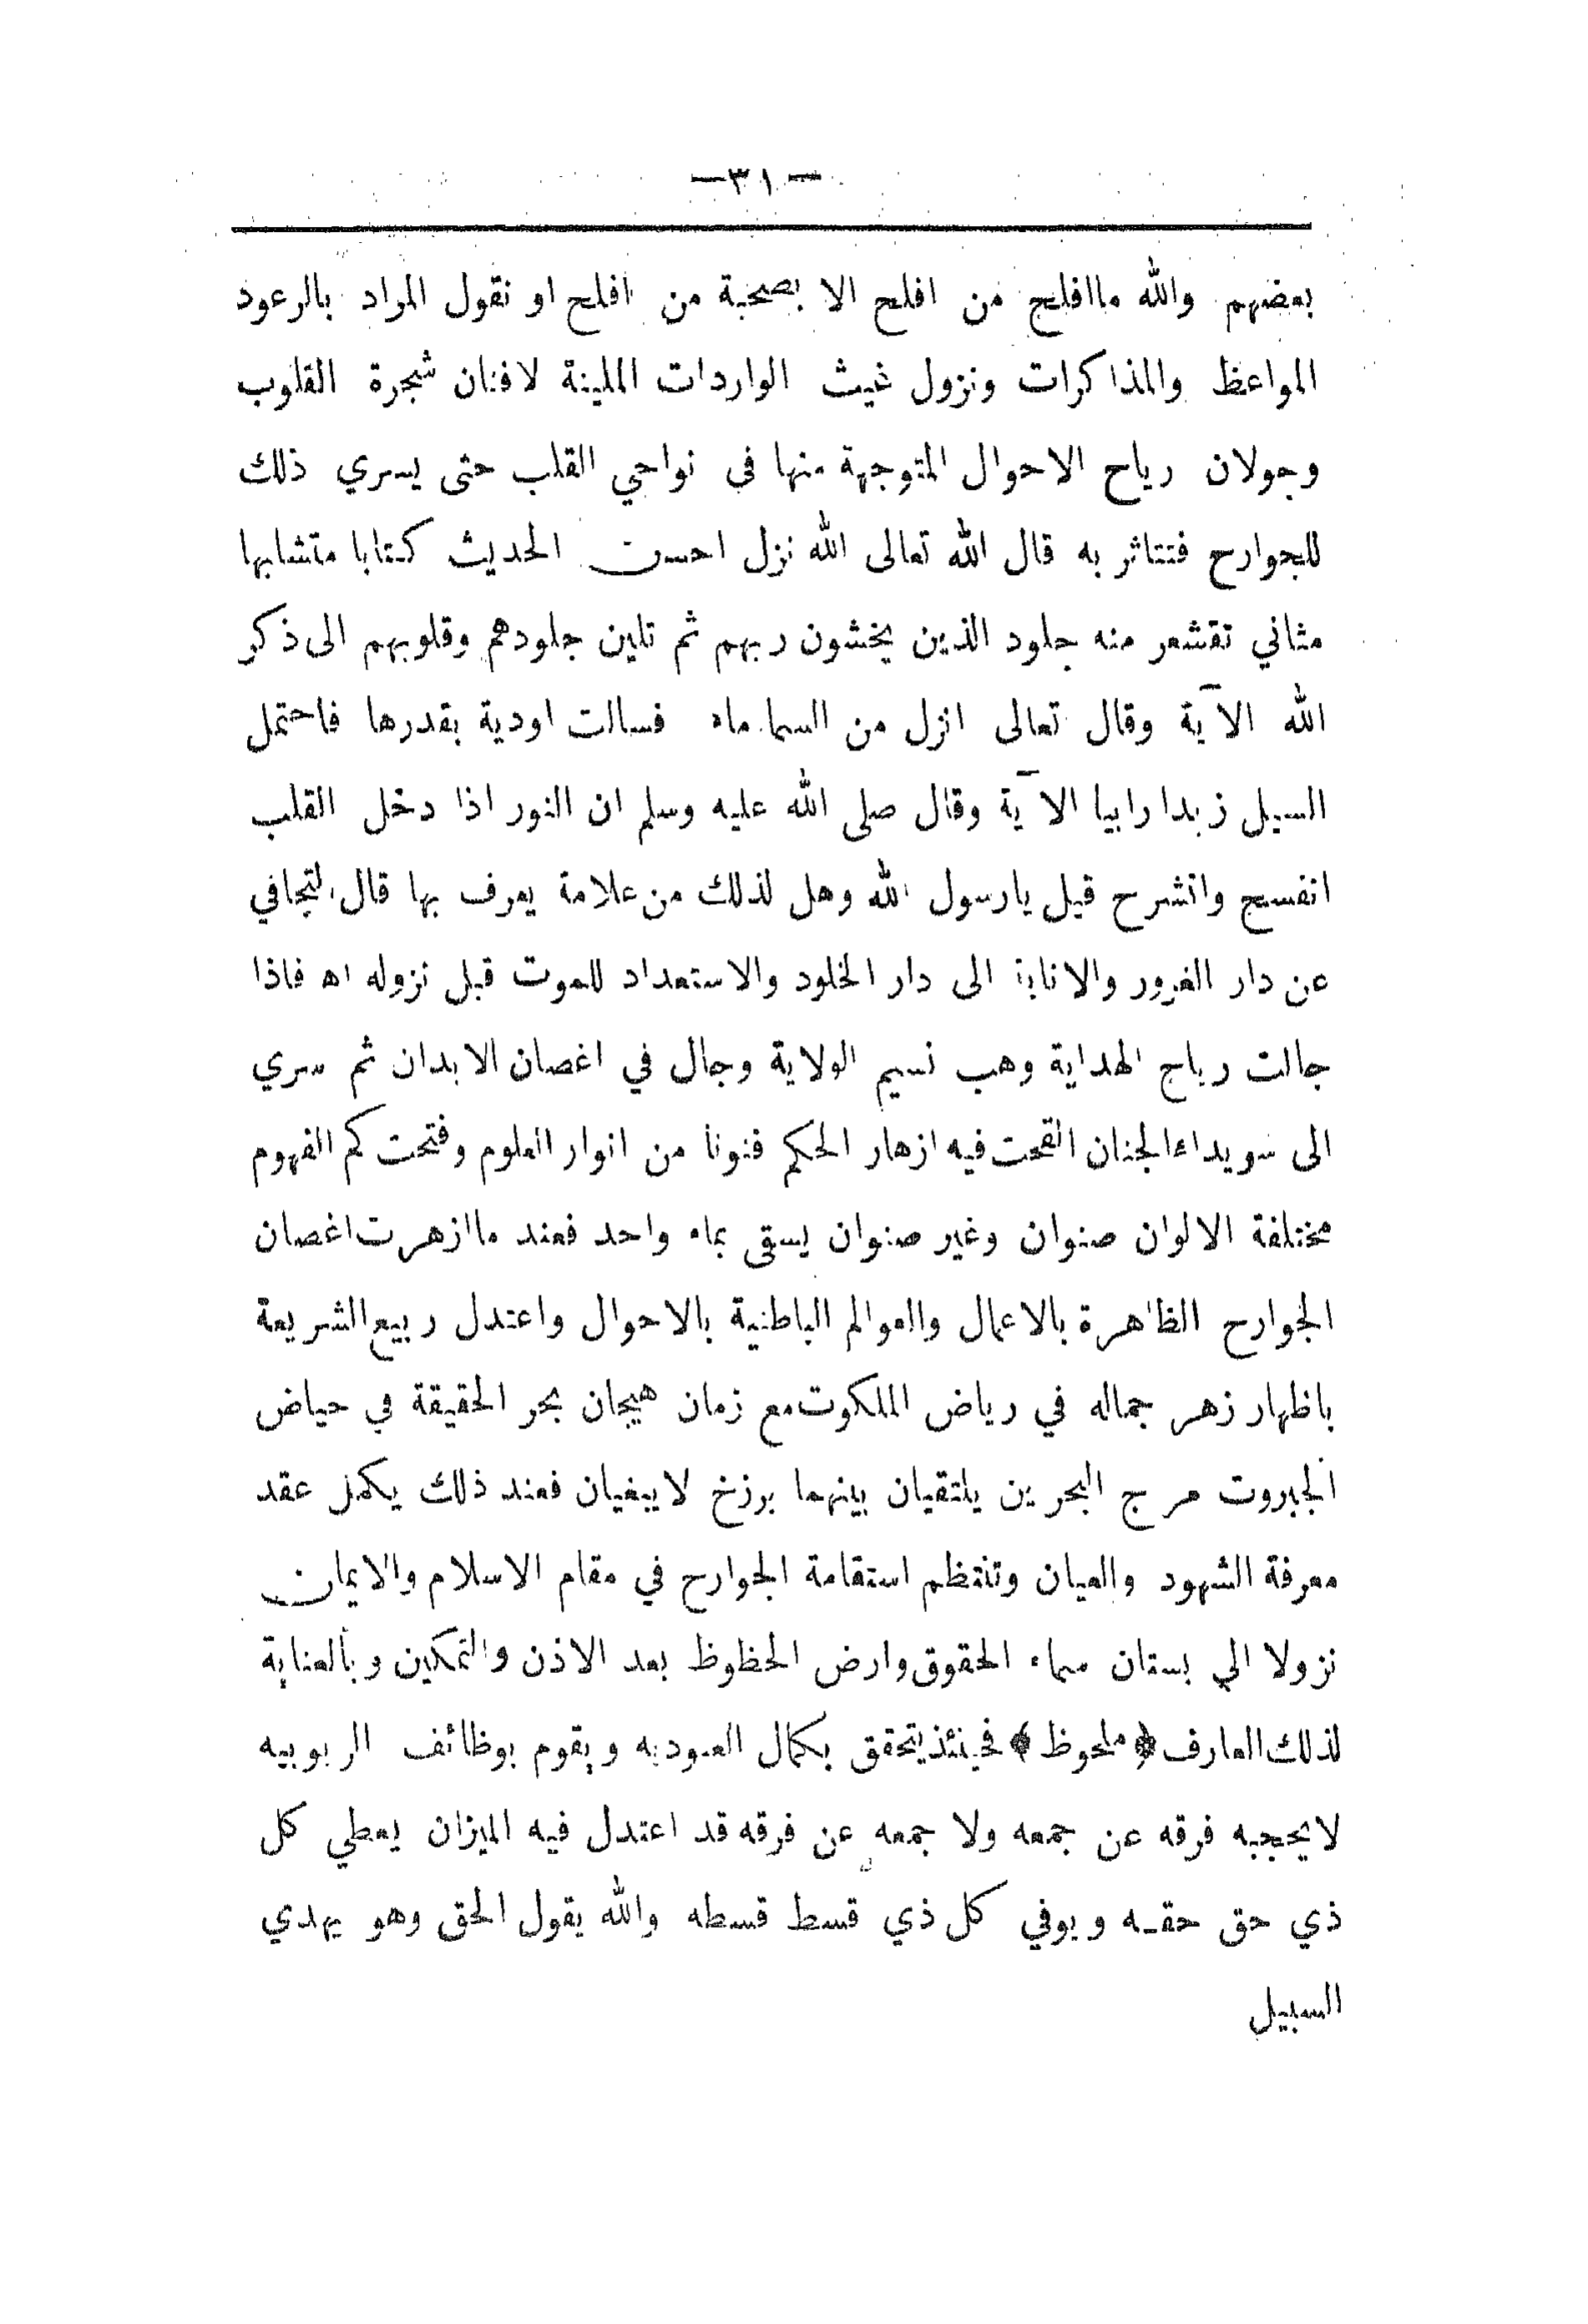 —٣١—
بعضهم والله ماافلح من افلح الا بصحبة من افلح او نقول المراد بالرعود
المواعظ والمذاكرات ونزول غيث الواردات الملينة لافنان شجرة القلوب
وجولان رياح الاحوال المتوجهة منها في نواحي القلب حتى يسري ذلك
للجوارح فتتاثر به قال الله تعالى الله نزل احسن الحديث كتابا متشابها
مثاني تقشعر منه جلود الذين يخشون ربهم ثم تلين جلودهم وقلوبهم الى ذكر
الله الآية وقال تعالى انزل من السما ماء فسالت اودية بقدرها فاحتمل
السيل زبدا رابيا الآية وقال صلى الله عليه وسلم ان النور اذا دخل القلب
انفسح وانشرح قيل يارسول الله وهل لذلك من علامة يعرف بها قال التجافي
عن دار الغرور والانابة الى دار الخلود والاستعداد للموت قبل نزوله اه فاذا
جالت رياح الهداية وهب نسيم الولاية وجال في اغصان الابدان ثم سري
الى سويداء الجنان القحت فيه ازهار الحكم فنونا من انوار العلوم وفتحت كم الفهوم
مختلفة الالوان صنوان وغير صنوان يسقى بماء واحد فعند ماازهرت اغصان
الجوارح الظاهرة بالاعمال والعوالم الباطنية بالاحوال واعتدل ربيع الشريعة
باظهار زهر جماله في رياض الملكوت مع زمان هيجان بحر الحقيقة في حياض
الجبروت مرج البحرين يلتقيان بينهما برزخ لايبغيان فعند ذلك يكمل عقد
معرفة الشهود والعيان وتنتظم استقامة الجوارح في مقام الاسلام والايمان
نزولا الي بستان سماء الحقوق وارض الحظوظ بعد الاذن والتمكين وبالعناية
لذلك العارف ﴿ملحوظ﴾ فحينئذ يتحقق بكمال العبوديه ويقوم بوظائف الربوبيه
لايحجبه فرقه عن جمعه ولا جمعه عن فرقه قد اعتدل فيه الميزان يعطي كل
ذي حق حقـه ويوفي كل ذي قسط قسطه والله يقول الحق وهو يهدي
السبيل